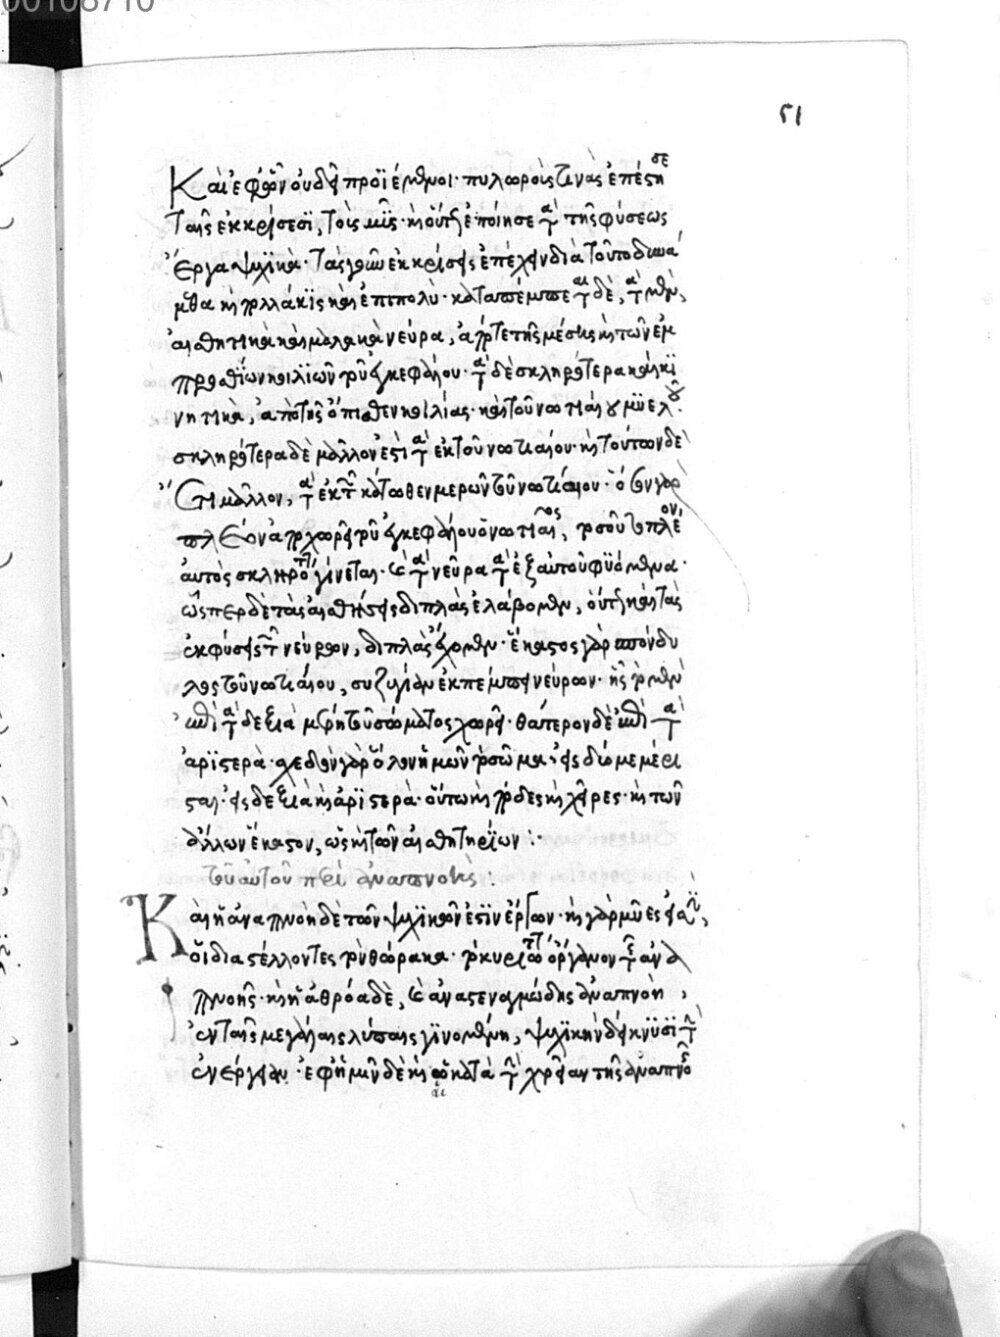 00108710
51
Καὶ ἐφ' ὧν οὐδὲ προϊέμεθα· πυλωροὺς τινὰς ἐπέστησε
ταῖς ἐκκρίσεσι, τοὺς μῦς· καὶ οὕτως ἐποίησε τὰ τῆς φύσεως
ἔργα ψυχικὰ· τὰς γοῦν ἐκκρίσεις ἐπέχειν διὰ τοῦτο δυνά
μεθα καὶ πολλάκις καὶ ἐπιπολὺ· καταπέμπεται δὲ, τὰ μὲν,
αἰσθητικὰ καὶ μαλακὰ νεῦρα, ἀπό τε τῆς μέσης καὶ τῶν ἐμ
προσθίων κοιλιῶν τοῦ ἐγκεφάλου· τὰ δὲ σκληρότερα καὶ κι
νητικὰ, ἀπὸ τῆς ὄπισθεν κοιλίας· καὶ τοῦ νωτιαίου μυελοῦ·
σκληρότερα δὲ μᾶλλον ἐστὶ τὰ ἐκ τοῦ νωτιαίου· καὶ τούτων δὲ
ἔτι μᾶλλον, τὰ ἐκ τῶν κάτωθεν μερῶν τοῦ νωτιαίου· ὅσον γὰρ
πλέον ἀποχωρεῖ τοῦ ἐγκεφάλου ὁ νωτιαῖος, τοσοῦτο πλέον
αὐτὸς σκληρότερος γίνεται· καὶ τὰ νεῦρα τὰ ἐξ αὐτοῦ φυόμενα·
ὥσπερ δὲ τὰς αἰσθήσεις διπλὰς ἐλάβομεν, οὕτως καὶ τὰς
ἐκφύσεις τῶν νεύρων, διπλὰς ἔχομεν· ἕκαστος γὰρ σπόνδυ
λος τοῦ νωτιαίου, συζυγίαν ἐκπέμπει νεύρων· ἧς τὸ μὲν
ἐπὶ τὰ δεξιὰ μέρη τοῦ σώματος χωρεῖ· θάτερον δὲ ἐπὶ τὰ
ἀριστερὰ· σχεδὸν γὰρ ὅλον ἡμῶν τὸ σῶμα· εἰς δύο μεμέρι
σται· εἰς δεξιὰ καὶ ἀριστερὰ· οὕτω καὶ πόδες καὶ χεῖρες· καὶ τῶν
ἄλλων ἕκαστον, ὡς καὶ τῶν αἰσθητηρίων:·
τοῦ αὐτοῦ περὶ ἀναπνοῆς.
Καὶ ἡ ἀναπνοὴ δὲ τῶν ψυχικῶν ἐστὶν ἔργων· καὶ γὰρ μύες εἰσὶν,
οἱ διαστέλλοντες τὸν θώρακα· τὸ κυριώτατον ὄργανον τῆς ἀνα
πνοῆς· καὶ ἡ ἀθρόα δὲ, καὶ ἀναστεναγμώδης ἀναπνοὴ,
ἐν ταῖς μεγάλαις λύπαις γινομένη, ψυχικὴν δείκνυσι τὴν
ἐνέργειαν· ἐφ' ἡμῖν δὲ καὶ κατὰ τὴν χρείαν τῆς ἀναπνο